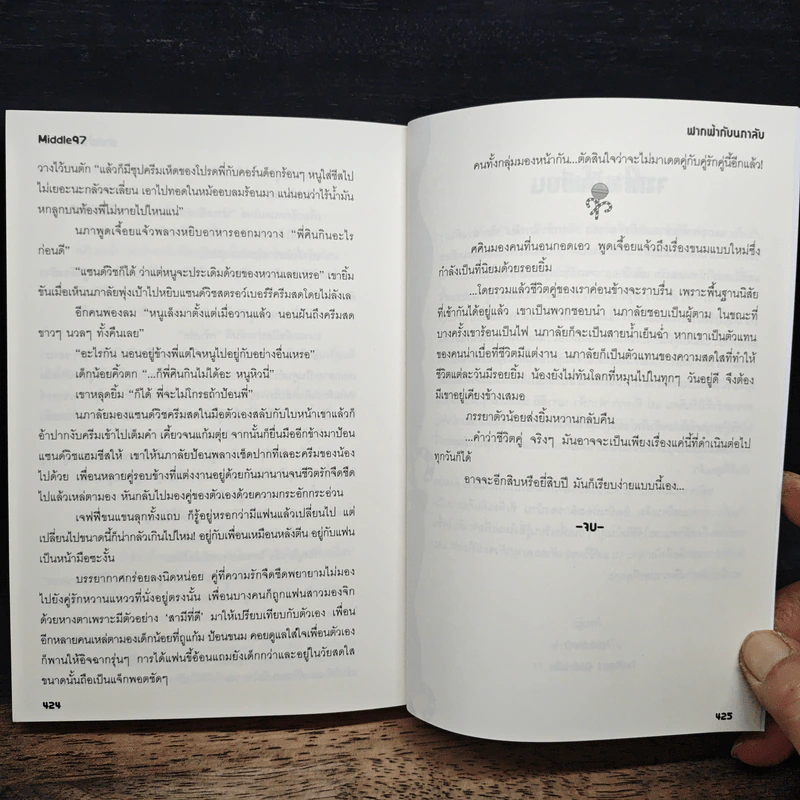 Middle97
วางไว้บนตัก “แล้วก็มีซุปครีมเห็ดของโปรดพี่กับคอร์นด็อกร้อนๆ หนูใส่ชีสไป
ไม่เยอะนะกลัวจะเลี่ยน เอาไปทอดในหม้ออบลมร้อนมา แน่นอนว่าไร้น้ำมัน
หกลูกบนท้องพี่ไม่หายไปไหนแน่”
นภาพูดเจื้อยแจ้วพลางหยิบอาหารออกมาวาง “พี่คินกินอะไร
ก่อนดี”
“แซนด์วิชก็ได้ ว่าแต่หนูจะประเดิมด้วยของหวานเลยเหรอ” เขายิ้ม
ขันเมื่อเห็นนภาลัยพุ่งเป้าไปหยิบแซนด์วิชสตรอว์เบอร์รีครีมสดโดยไม่ลังเล
อีกคนพองลม “หนูเล็งมาตั้งแต่เมื่อวานแล้ว นอนฝันถึงครีมสด
ขาวๆ นวลๆ ทั้งคืนเลย”
“อะไรกัน นอนอยู่ข้างพี่แต่ใจหนูไปอยู่กับอย่างอื่นเหรอ”
เด็กน้อยคิ้วตก “...ก็พี่คินกินไม่ได้อะ หนูหิวนี่”
เขาหลุดยิ้ม “ก็ได้ พี่จะไม่โกรธถ้าป้อนพี่”
นภาลัยมองแซนด์วิชครีมสดในมือตัวเองสลับกับใบหน้าเขาแล้วก็
อ้าปากงับครีมเข้าไปเต็มคำ เคี้ยวจนแก้มตุ่ย จากนั้นก็ยื่นมืออีกข้างมาป้อน
แซนด์วิชแฮมชีสให้ เขาให้นภาลัยป้อนพลางเช็ดปากที่เลอะครีมของน้อง
ไปด้วย เพื่อนหลายคู่รอบข้างที่แต่งงานอยู่ด้วยกันมานานจนชีวิตรักจืดชืด
ไปแล้วเหล่ตามอง หันกลับไปมองคู่ของตัวเองด้วยความกระอักกระอ่วน
เจฟฟี่ขนแขนลุกทั้งแถบ ก็รู้อยู่หรอกว่ามีแฟนแล้วเปลี่ยนไป แต่
เปลี่ยนไปขนาดนี้ก็น่ากลัวเกินไปไหม! อยู่กับเพื่อนเหมือนหลังตีน อยู่กับแฟน
เป็นหน้ามือซะงั้น
บรรยากาศกร่อยลงนิดหน่อย คู่ที่ความรักจืดชืดพยายามไม่มอง
ไปยังคู่รักหวานแหววที่นั่งอยู่ตรงนั้น เพื่อนบางคนก็ถูกแฟนสาวมองจิก
ด้วยหางตาเพราะมีตัวอย่าง ‘สามีที่ดี’ มาให้เปรียบเทียบกับตัวเอง เพื่อน
อีกหลายคนเหล่ตามองเด็กน้อยที่ถูแก้ม ป้อนขนม คอยดูแลใส่ใจเพื่อนตัวเอง
ก็พานให้อิจฉากรุ่นๆ การได้แฟนขี้อ้อนแถมยังเด็กกว่าและอยู่ในวัยสดใส
ขนาดนั้นถือเป็นแจ็กพอตชัดๆ
424
ฟากฟ้ากับนภาลัย
คนทั้งกลุ่มมองหน้ากัน...ตัดสินใจว่าจะไม่มาเดตคู่กับคู่รักคู่นี้อีกแล้ว!
ศศินมองคนที่นอนกอดเอว พูดเจื้อยแจ้วถึงเรื่องขนมแบบใหม่ซึ่ง
กำลังเป็นที่นิยมด้วยรอยยิ้ม
...โดยรวมแล้วชีวิตคู่ของเราค่อนข้างจะราบรื่น เพราะพื้นฐานนิสัย
ที่เข้ากันได้อยู่แล้ว เขาเป็นพวกชอบนำ นภาลัยชอบเป็นผู้ตาม ในขณะที่
บางครั้งเขาร้อนเป็นไฟ นภาลัยก็จะเป็นสายน้ำเย็นฉ่ำ หากเขาเป็นตัวแทน
ของคนน่าเบื่อที่ชีวิตมีแต่งาน นภาลัยก็เป็นตัวแทนของความสดใสที่ทำให้
ชีวิตแต่ละวันมีรอยยิ้ม น้องยังไม่ทันโลกที่หมุนไปในทุกๆ วันอยู่ดี จึงต้อง
มีเขาอยู่เคียงข้างเสมอ
ภรรยาตัวน้อยส่งยิ้มหวานกลับคืน
...คำว่าชีวิตคู่ จริงๆ มันอาจจะเป็นเพียงเรื่องแค่นี้ที่ดำเนินต่อไป
ทุกวันก็ได้
อาจจะอีกสิบหรือยี่สิบปี มันก็เรียบง่ายแบบนี้เอง...
-จบ-
425